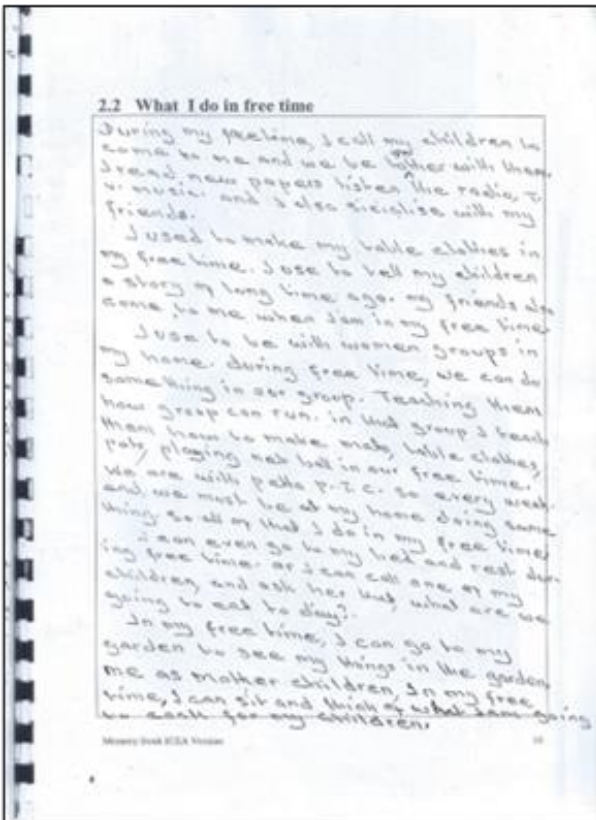 2.2 What I do in free time
During my freetime, I call my children to
come to me and we be together with them.
I read new papers listen the radio, T.
V. music. and I also sicialise with my
friends.
I used to make my table clothes in
my free time. I use to tell my children
a story of long time ago. my friends also
come to me when I am in my free time
I use to be with women groups in
my home. during free time, we can do
something in our group. Teaching them
how group can run. in that group I teach
them how to make mats, table clothes,
pots, playing net ball in our free time.
We are with P.T.C. so every week
end, we must be at my home doing some
thing. so all of that I do in my free time
I can even go to my bed and rest dur-
ing free time. or I can call one of my
children, and ask her that, what are we
going to eat to day?.
In my free time, I can go to my
garden to see my things in the garden
me as mother children, In my free
time, I can sit and think of what I am going
to cook for my children.
Memory Book ICEA Version